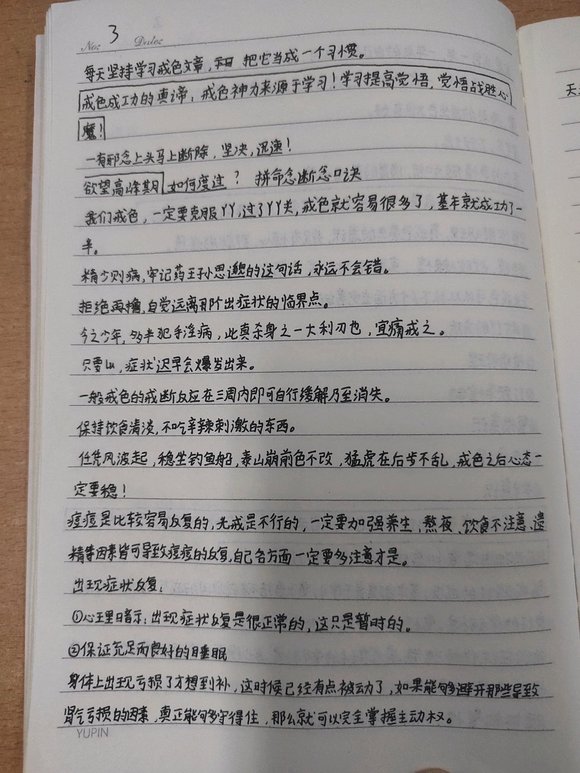 No: 3 Date:
每天坚持学习戒色文章，和 把它当成一个习惯。
戒色成功的真谛：戒色神力来源于学习！学习提高觉悟，觉悟战胜心
魔！
一有邪念上头马上断除，坚决，迅速！
欲望高峰期 如何度过？ 拼命念断念口诀
我们戒色，一定要克服YY，过了YY关，戒色就容易很多了，基本就成功了一
半。
精少则病，牢记药王孙思邈的这句话，永远不会错。
拒绝再撸，自觉远离那个出症状的临界点。
今之少年，多半犯手淫病，此真杀身之一大利刃也，宜痛戒之。
只要lu，症状迟早会爆发出来。
一般戒色的戒断反应在三周内即可自行缓解乃至消失。
保持饮食清淡，不吃辛辣刺激的东西。
任凭风波起，稳坐钓鱼船，泰山崩前色不改，猛虎在后步不乱，戒色之后心态一
定要稳！
痘痘是比较容易反复的，光戒是不行的，一定要加强养生，熬夜、饮食不注意、遗
精等因素皆可导致痘痘的反复，自己各方面一定要多注意才是。
出现症状反复：
①心理暗示：出现症状反复是很正常的，这只是暂时的。
②保证充足而良好的睡眠
身体上出现亏损了才想到补，这时候已经有点被动了，如果能够避开那些导致
肾气亏损的因素，真正能够守得住，那么就可以完全掌握主动权。
YUPIN